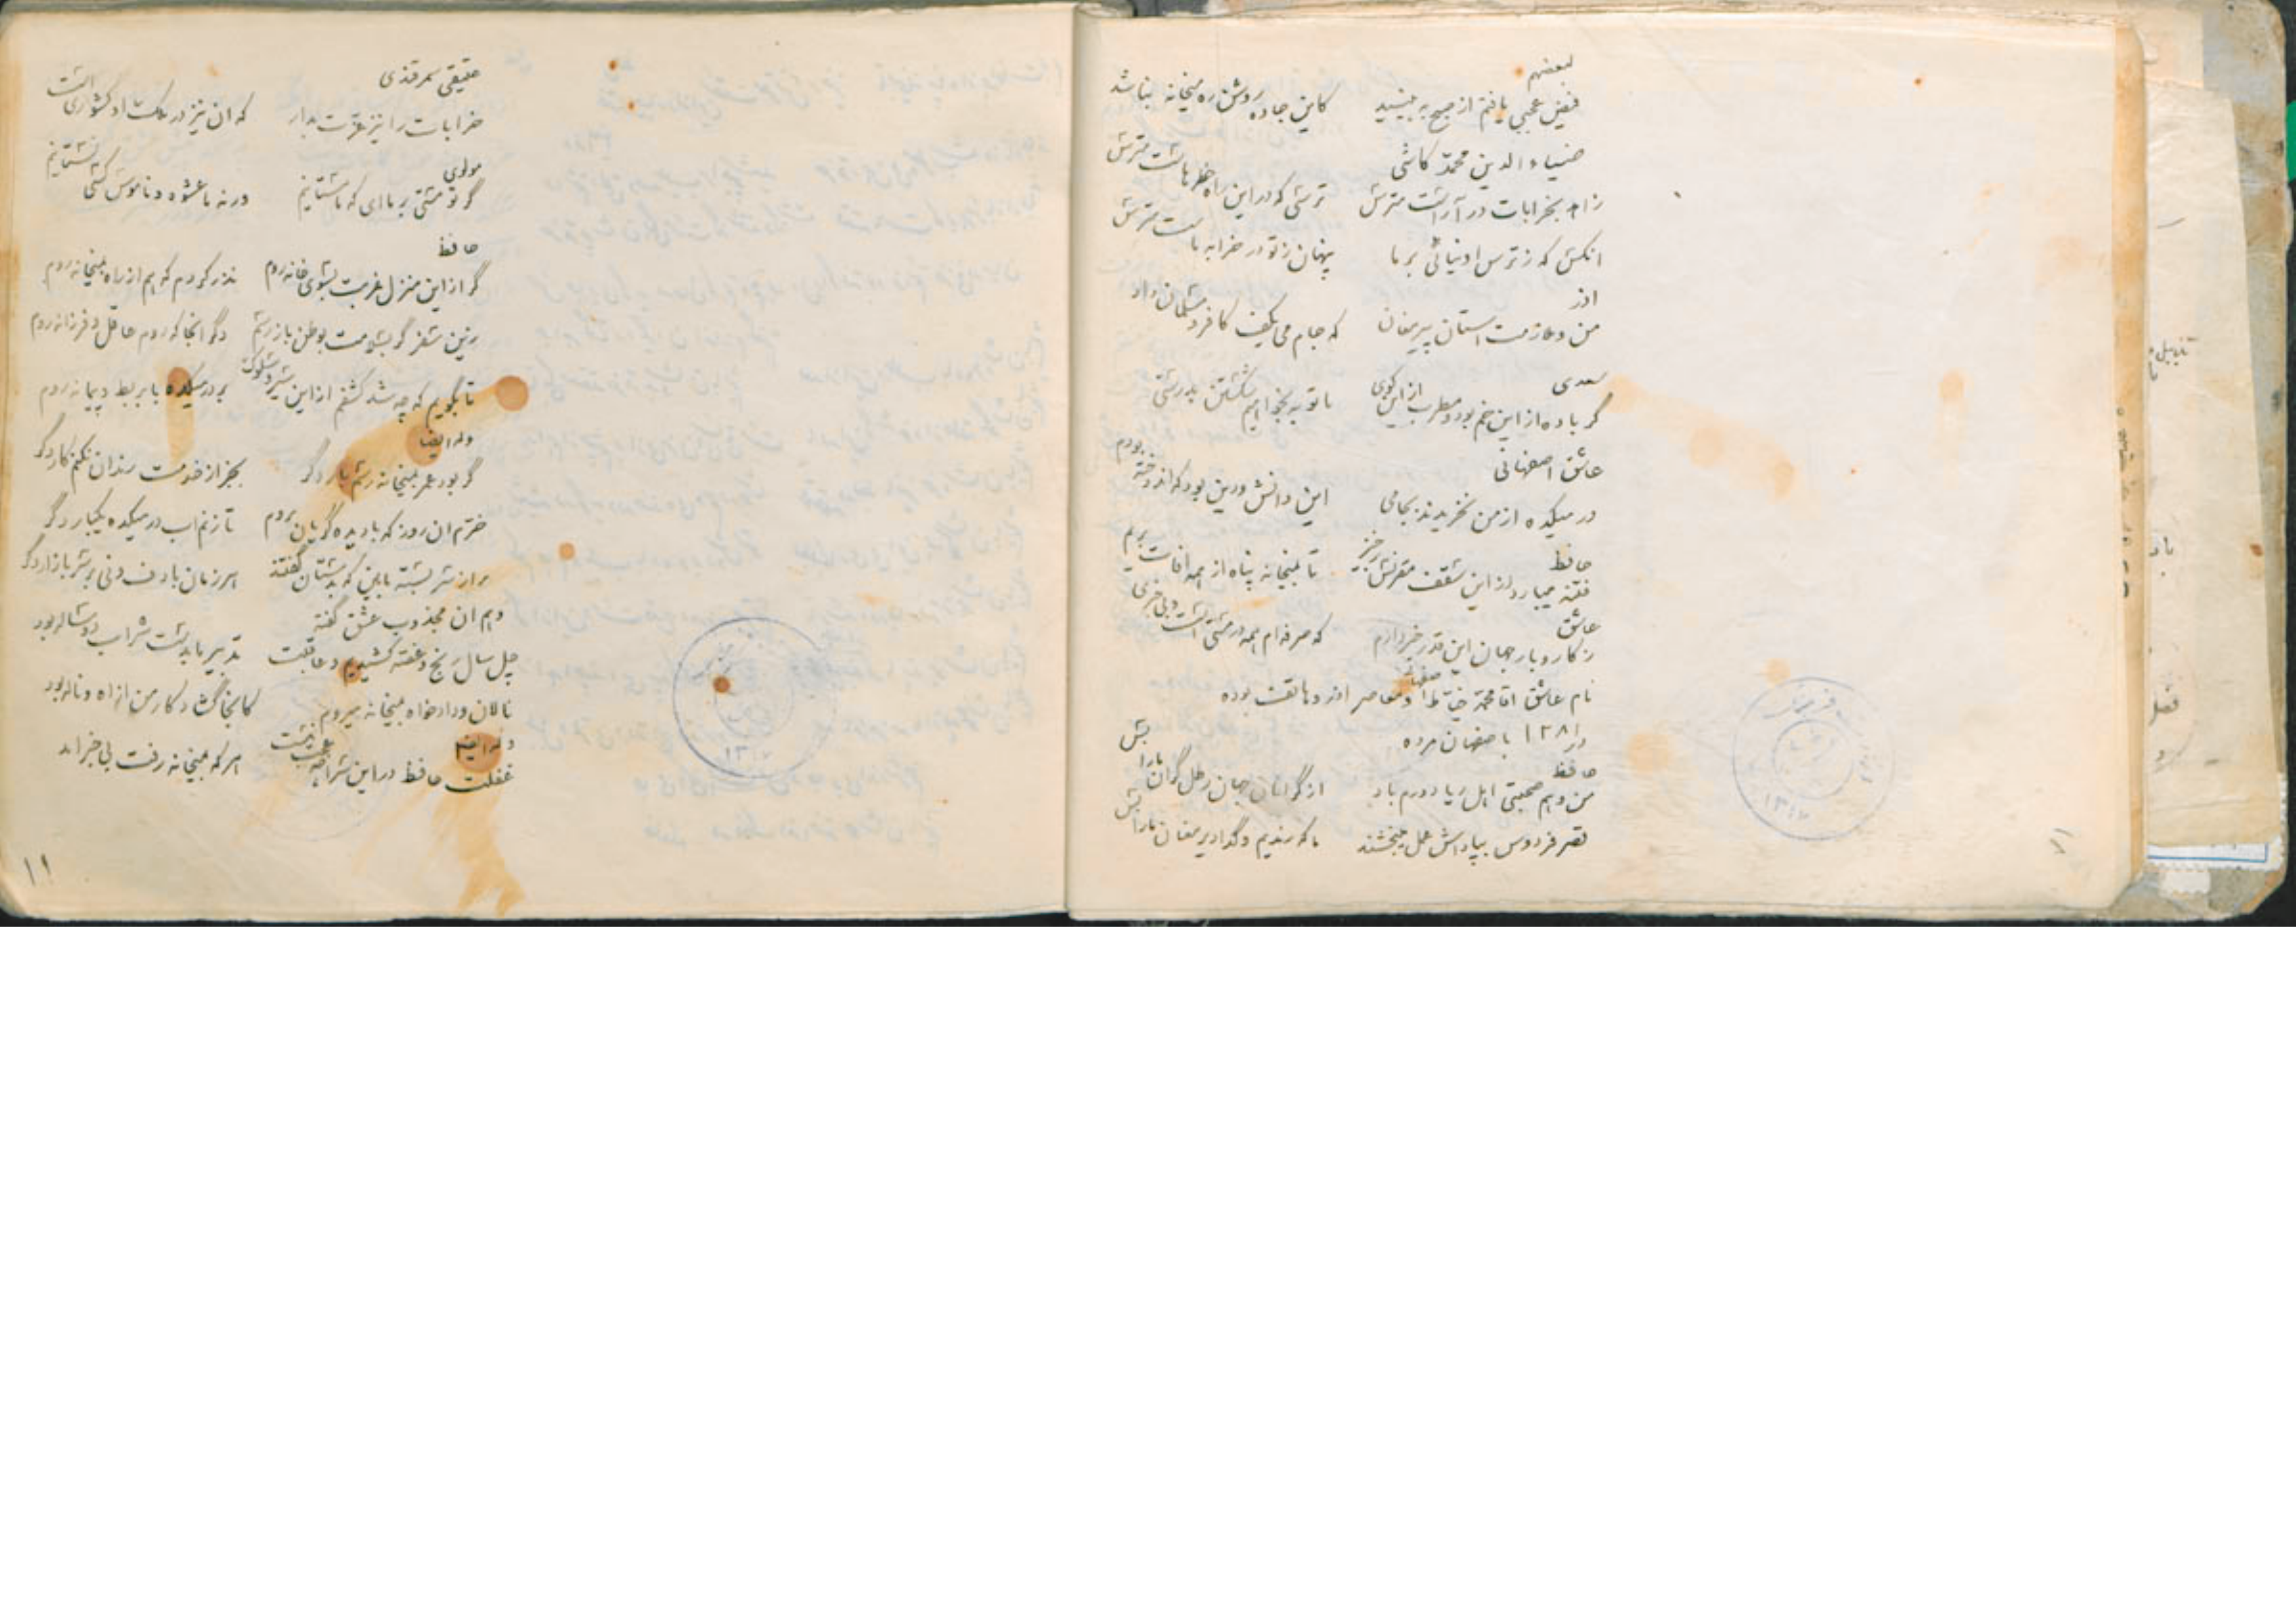 لبعضهم
فیض عجبی یافتم از صبح به بینید کاین جاده روشن ره میخانه نباشد
ضیاء الدین محمد کاشی
زاهد بخرابات در آراست مترس ترسی که در این راه خطرهاست مترس
انکس که ز ترس او نیائی بر ما پنهان ز تو در خرابه ماست مترس
اذر
من و ملازمت استان پیر مغان که جام می بکف کافر و مسلمان داد
سعدی
گر باده از این خم بود و مطرب از این کوی ما توبه بخواهیم شکستن بدرستی
عاشق اصفهانی
در میکده از من نخریدند بجامی این دانش و دین بود که اندوخته بودم
حافظ
فتنه میبارد از این سقف مقرنس برخیز تا بمیخانه پناه از همه افات بریم
عاشق
ز کار و بار جهان این قدر خبر دارم که صرفه ام همه در مستی است و بی خبری
نام عاشق اقا محمد خیاط اصفهانی و معاصر اذر و هاتف بوده
در ۱۲۸۱ باصفهان مرده
حافظ
من و هم صحبتی اهل ریا دورم باد از گرانان جهان رطل گران ما را بس
قصر فردوس بپاداش عمل میبخشند ما که رندیم و گدا دیر مغان ما را بس
حقیقی سمرقندی
خرابات را نیز عزت بدار که ان نیز در ملکت او کشوری است
مولوی
گر تو مستی بر ما ای که ما مستانیم ورنه ما عشوه و ناموس کسی نستانیم
حافظ
گر از این منزل غربت بسوی خانه روم نذر کردم که هم از راه بمیخانه روم
زین سفر گر بسلامت بوطن باز رسم دگر انجا که روم عاقل و فرزانه روم
تا بگویم که چه شد کشفم از این سیر و سلوک بدر میکده با بربط و پیمانه روم
وله ایضا
گر بود عمر بمیخانه رسم بار دگر بجز از خدمت رندان نکنم کار دگر
خرم ان روز که با دیده گریان بروم تا زنم اب در میکده یکبار دگر
راز سر بسته ما بین که بدستان گفتند هر زمان با دف و نی بر سر بازار دگر
و هم ان مجذوب عشق گفته
چل سال رنج و غصه کشیدیم و عاقبت تدبیر ما بدست شراب دو ساله بود
نالان و دادخواه بمیخانه میروم کانجا گشاد کار من از اه و ناله بود
وله ایضا
غفلت حافظ در این سراچه عجب نیست هر که بمیخانه رفت بی خبر اید
۱۱